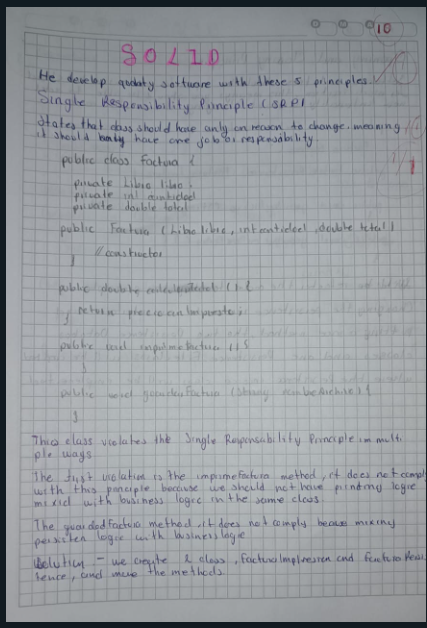 10
SOLID
He develop quality software with these 5 principles.
Single Responsibility Principle (SRP)
States that class should have only on reason to change, meaning
it should have one job or responsability
public class Factura {
private Libro libro;
private int cantidad
private double total
public Factura (Libro libro, int cantidad, double total)
} // constructor
public double () {
return precio
}
public void imprimeFactura () {
}
public void guardarFactura (String nombreArchivo) {
}
This class violates the Single Responsability Principle in multi
ple ways
The first violation is the imprimeFactura method, it does not comply
with this principle because we should not have printing logic
mixed with business logic in the same class.
The method, it does not comply mixing
logic with business logic
Solution - we create 2 class, FacturaImpresion and
tence, and move the methods.